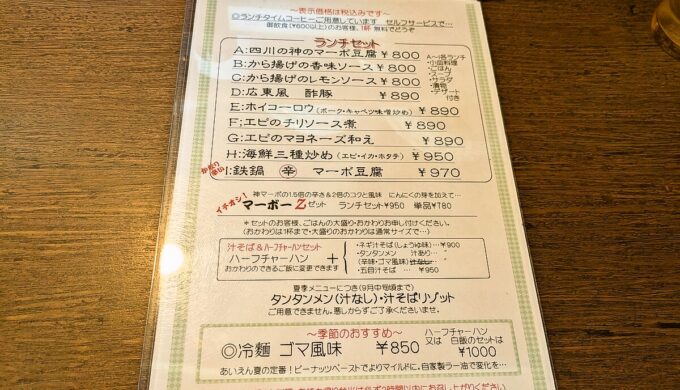 ～表示価格は税込みです～
◎ランチタイムコーヒーご用意しています セルフサービスで…
御飲食(¥600以上)のお客様、1杯 無料でどうぞ
ランチセット
A:四川の神のマーボ豆腐 ¥800
B:から揚げの香味ソース ¥800
C:から揚げのレモンソース ¥800
D:広東風 酢豚 ¥890
E:ホイコーロウ(ポーク・キャベツ味噌炒め) ¥890
F;エビのチリソース煮 ¥890
G:エビのマヨネーズ和え ¥890
H:海鮮三種炒め(エビ・イカ・ホタテ) ¥950
かなり辛口
I:鉄鍋 辛 マーボ豆腐 ¥970
A～I各ランチ
・小皿料理
・ごはん
・スープ
・サラダ
・漬物
・デザート
付き
神マーボの1.5倍の辛さ&2倍のコクと風味 にんにくの芽を加えて…
イチオシ! マーボーZセット ランチセット¥950 単品¥780
*セットのお客様、ごはんの大盛り・おかわりお申し付けください。
(おかわりは1杯まで・大盛りのおかわりは通常サイズで…)
汁そば&ハーフチャーハンセット
ハーフチャーハン
おかわりのできるご飯に変更できます
+
・ネギ汁そば(しょうゆ味)…¥900
・タンタンメン 汁あり…
(辛味・ゴマ風味) 汁なし…
・五目汁そば … ¥950
夏季メニューにつき(9月中旬頃まで)
タンタンメン(汁なし)・汁そばリゾット
ご用意できません。悪しからずご了承くださいませ。
～季節のおすすめ～
◎冷麺 ゴマ風味 ¥850
ハーフチャーハン
又は 白飯のセットは
¥1000
あいえん夏の定番!ピーナッツペーストでよりマイルドに、自家製ラー油で変化を…